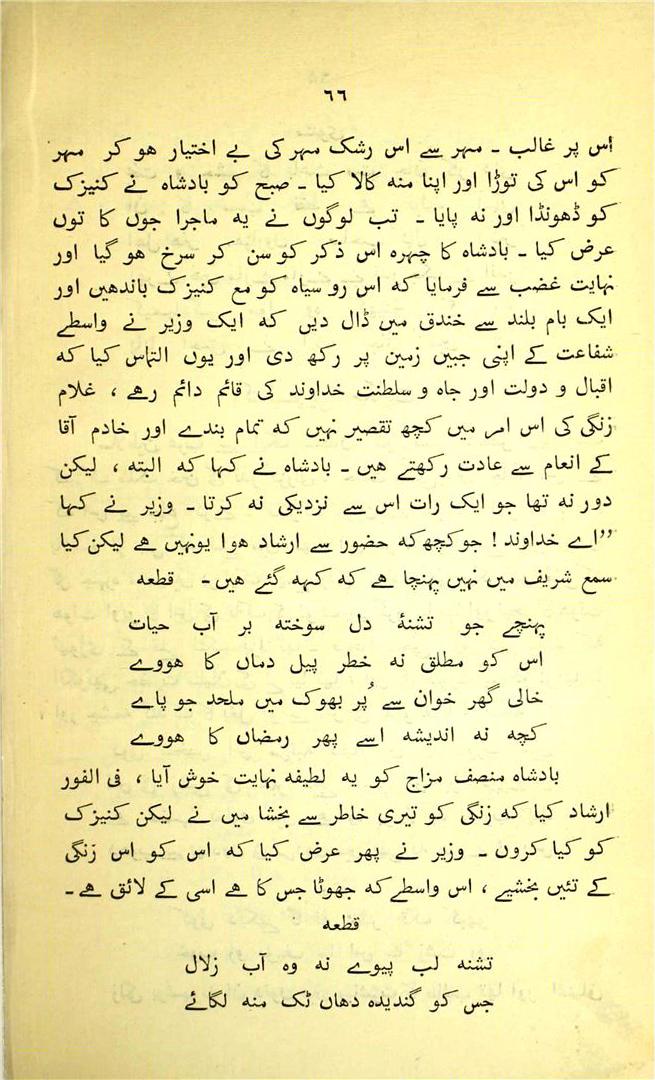 ٦٦
اس پر غالب ـ مہر سے اس رشک مہر کی بے اختیار هو کر مہر
کو اس کی توڑا اور اپنا منہ کالا کیا ـ صبح کو بادشاہ نے کنیزک
کو ڈھونڈا اور نہ پایا ـ تب لوگوں نے یہ ماجرا جوں کا توں
عرض کیا ـ بادشاہ کا چہرہ اس ذکر کو سن کر سرخ هو گیا اور
نہایت غضب سے فرمایا کہ اس رو سیاہ کو مع کنیزک باندھیں اور
ایک بام بلند سے خندق میں ڈال دیں کہ ایک وزیر نے واسطے
شفاعت کے اپنی جبیں زمین پر رکھ دی اور یوں التماس کیا کہ
اقبال و دولت اور جاہ و سلطنت خداوند کی قائم دائم رهے ، غلام
زنگی کی اس امر میں کچھ تقصیر نہیں کہ تمام بندے اور خادم آقا
کے انعام سے عادت رکھتے هیں ـ بادشاہ نے کہا کہ البتہ ، لیکن
دور نہ تھا جو ایک رات اس سے نزدیکی نہ کرتا ـ وزیر نے کہا
”اے خداوند ! جو کچھ کہ حضور سے ارشاد هوا یونہیں هے لیکن کیا
سمع شریف میں نہیں پہنچا هے کہ کہہ گئے هیں ـ قطعہ
پہنچے جو تشنۂ دل سوختہ بر آب حیات
اس کو مطلق نہ خطر پیل دماں کا هووے
خالی گھر خوان سے پُر بھوک میں ملحد جو پاے
کچھ نہ اندیشہ اسے پھر رمضاں کا هووے
بادشاہ منصف مزاج کو یہ لطیفہ نہایت خوش آیا ، فی الفور
ارشاد کیا کہ زنگی کو تیری خاطر سے بخشا میں نے لیکن کنیزک
کو کیا کروں ـ وزیر نے پھر عرض کیا کہ اس کو اس زنگی
کے تئیں بخشیے ، اس واسطے کہ جھوٹا جس کا هے اسی کے لائق هے ـ
قطعہ
تشنہ لب پیوے نہ وہ آب زلال
جس کو گندیدہ دھاں ٹک منہ لگائے